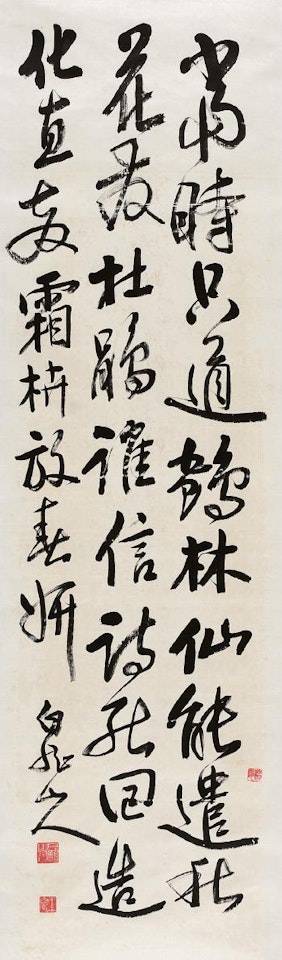 當時只道鶴林仙能遣秋
花發杜鵑誰信詩能回造
化直教霜枿放春妍
白龍山人